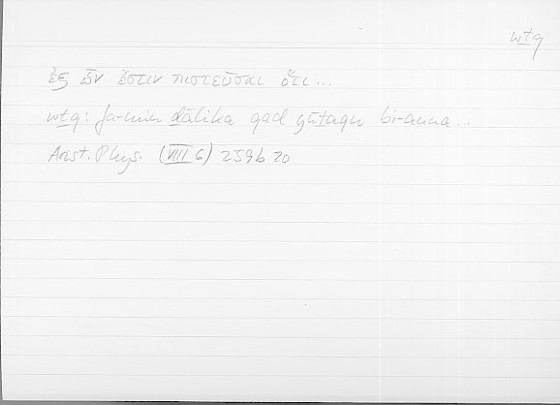 wṯq
ἐξ ὧν ἔστιν πιστεῦσαι ὅτι...
wṯq: fa-min ḏālika qad yūṯaqu bi-anna...
Arist. Phys. (VIII 6) 259b20